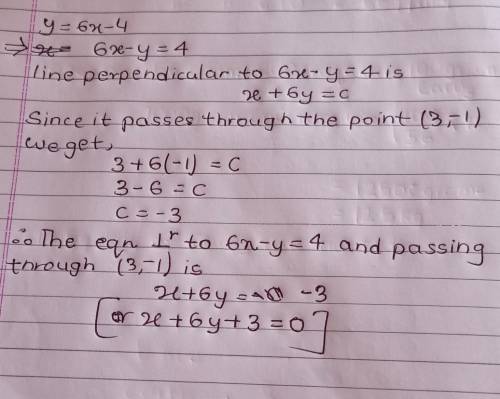 y = 6x - 4
⇒ 6x - y = 4
line perpendicular to 6x - y = 4 is
x + 6y = c
Since it passes through the point (3,-1)
we get,
3 + 6(-1) = C
3 - 6 = C
C = -3
∴ The eqn ⊥r to 6x - y = 4 and passing
through (3,-1) is
x + 6y = -3
[or x + 6y + 3 = 0]